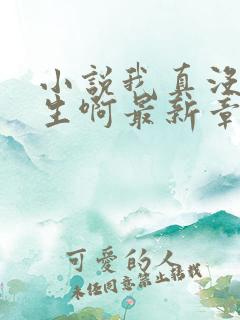 小說我真沒
生啊最新章
可愛的人
未经同意禁止转载